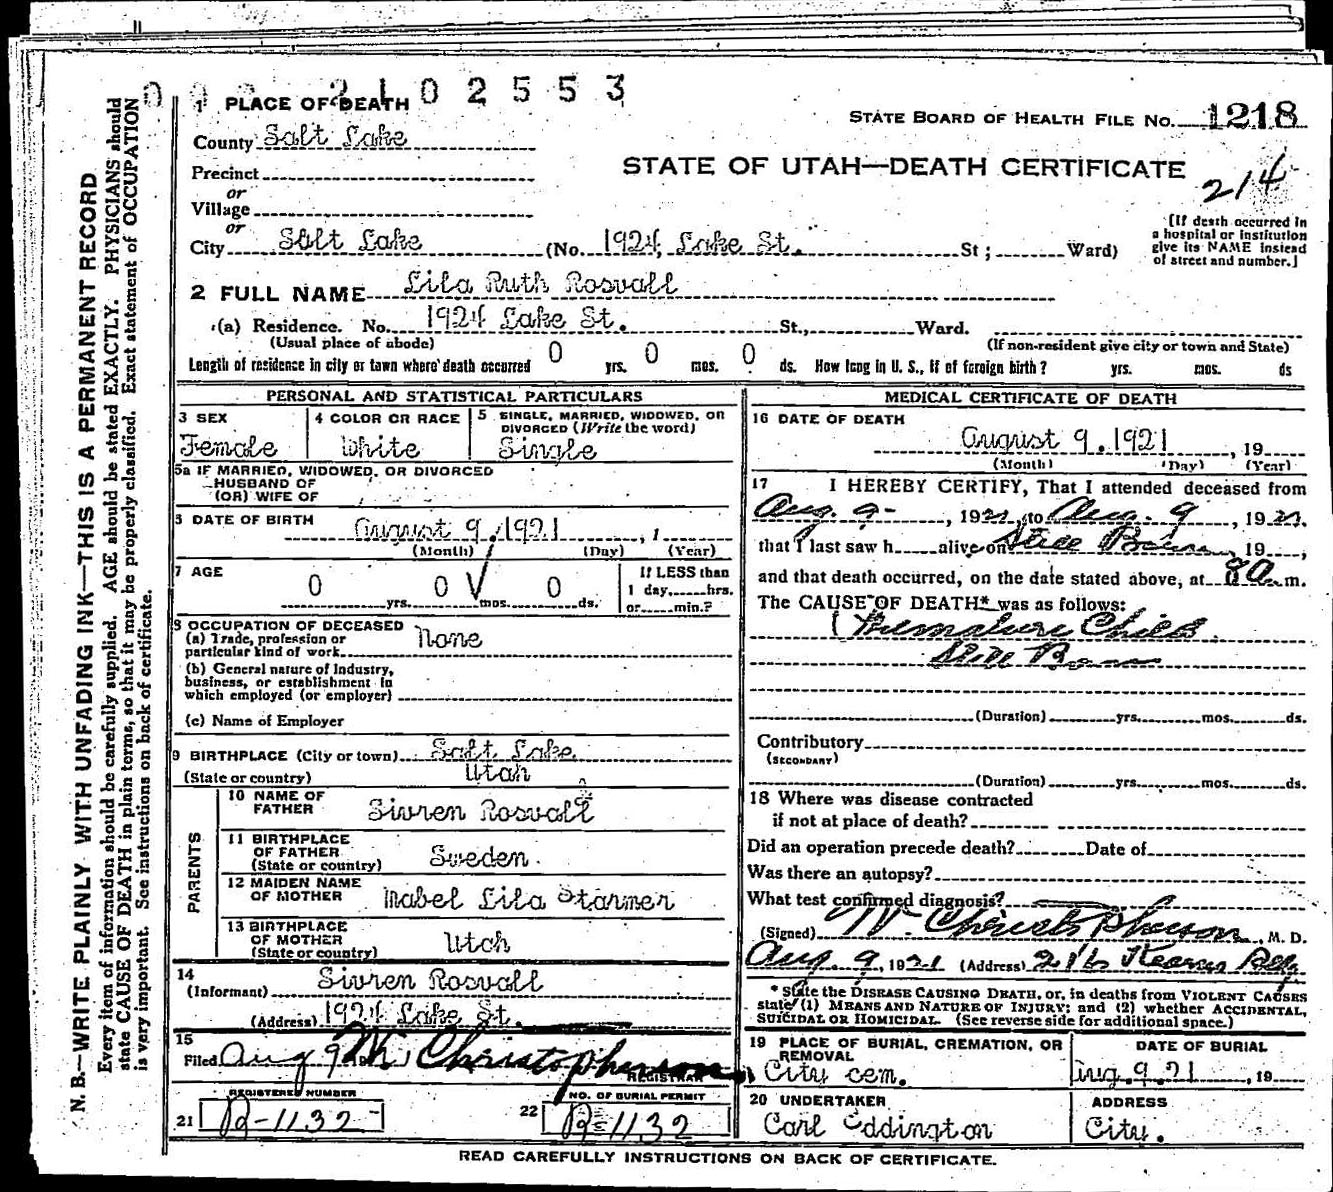 2102553
1 PLACE OF DEATH
County Salt Lake
STATE BOARD OF HEALTH FILE NO. 1218
Precinct
STATE OF UTAH—DEATH CERTIFICATE
214
or
Village
or
City Salt Lake (No. 1924 Lake St. St; Ward)
[If death occurred in
a hospital or institution
give its NAME instead
of street and number.]
2 FULL NAME Lila Ruth Rosvall
(a) Residence. No. 1924 Lake St. St., Ward.
(Usual place of abode)
(If non-resident give city or town and State)
Length of residence in city or town where death occurred 0 yrs. 0 mos. 0 ds. How long in U. S., if of foreign birth? yrs. mos. ds
PERSONAL AND STATISTICAL PARTICULARS
3 SEX
Female
4 COLOR OR RACE
White
5 SINGLE, MARRIED, WIDOWED, OR
DIVORCED (Write the word)
Single
5a IF MARRIED, WIDOWED, OR DIVORCED
HUSBAND OF
(OR) WIFE OF
6 DATE OF BIRTH August 9, 1921, 1
(Month) (Day) (Year)
7 AGE
0 yrs. 0 mos. 0 ds.
If LESS than
1 day, hrs.
or min.?
8 OCCUPATION OF DECEASED
(a) Trade, profession or
particular kind of work None
(b) General nature of Industry,
business, or establishment in
which employed (or employer)
(c) Name of Employer
9 BIRTHPLACE (City or town) Salt Lake
(State or country) Utah
PARENTS
10 NAME OF
FATHER Sivren Rosvall
11 BIRTHPLACE
OF FATHER
(State or country) Sweden
12 MAIDEN NAME
OF MOTHER Mabel Lila Starmer
13 BIRTHPLACE
OF MOTHER
(State or country) Utah
14
(Informant) Sivren Rosvall
(Address) 1924 Lake St.
15
Filed Aug 9 W Christopherson
REGISTRAR
REGISTERED NUMBER
21 B-1132
NO. OF BURIAL PERMIT
22 B-1132
MEDICAL CERTIFICATE OF DEATH
16 DATE OF DEATH
August 9, 1921, 19
(Month) (Day) (Year)
17 I HEREBY CERTIFY, That I attended deceased from
Aug. 9, 1921, to Aug. 9, 1921
that I last saw h alive on Still Born, 19 ,
and that death occurred, on the date stated above, at 8 a. m.
The CAUSE OF DEATH* was as follows:
Premature Child
Still Born
(Duration) yrs. mos. ds.
Contributory
(SECONDARY)
(Duration) yrs. mos. ds.
18 Where was disease contracted
if not at place of death?
Did an operation precede death? Date of
Was there an autopsy?
What test confirmed diagnosis?
(Signed) W. Christopherson, M. D.
Aug. 9, 1921 (Address) 216 Kearns Bldg
* State the DISEASE CAUSING DEATH, or, in deaths from VIOLENT CAUSES
state (1) MEANS AND NATURE OF INJURY; and (2) whether ACCIDENTAL,
SUICIDAL OR HOMICIDAL. (See reverse side for additional space.)
19 PLACE OF BURIAL, CREMATION, OR
REMOVAL
City cem.
DATE OF BURIAL
Aug. 9, 21, 19
20 UNDERTAKER
Carl Eddington
ADDRESS
City.
READ CAREFULLY INSTRUCTIONS ON BACK OF CERTIFICATE.
N. B.—WRITE PLAINLY WITH UNFADING INK—THIS IS A PERMANENT RECORD
Every item of information should be carefully supplied. AGE should be stated EXACTLY. PHYSICIANS should
state CAUSE OF DEATH in plain terms, so that it may be properly classified. Exact statement of OCCUPATION
is very important. See instructions on back of certificate.